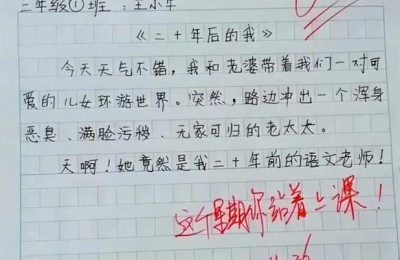 二年级①班：王小牛
《二十年后的我》
今天天气不错，我和老婆带着我们一对可
爱的儿女环游世界。突然，路边冲出一个浑身
恶臭、满脸污秽、无家可归的老太太。
天啊！她竟然是我二十年前的语文老师！
这个星期你站着上课！